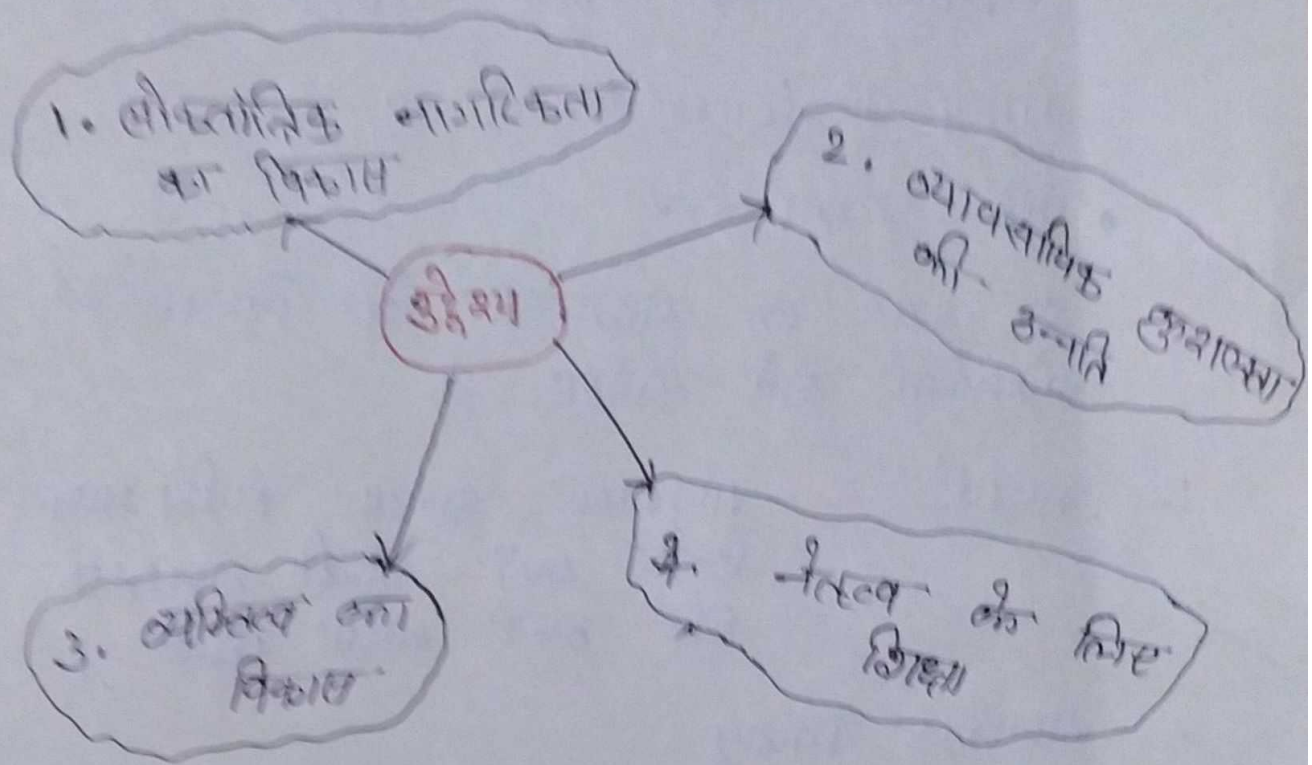 1. लोकतांत्रिक नागरिकता
का विकास
2. व्यावसायिक कुशलता
की उन्नति
उद्देश्य
3. व्यक्तित्व का
विकास
4. नेतृत्व के लिए
शिक्षा